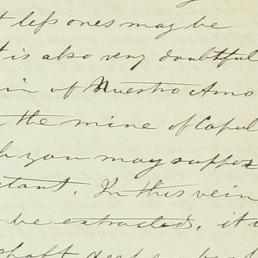 t less ones may be
t is also very doubtful
in of Nuestro Amo
the mine of Capul
h you may suppos
tant. In this vein
be extracted, it
shaft deep